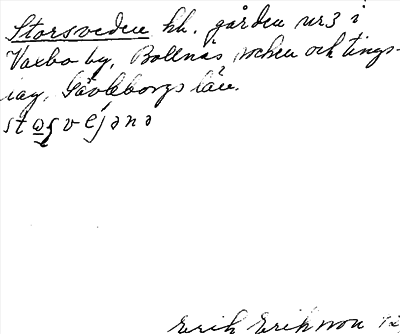 Storsveden hh. gården nr 3 i
Vaxbo by, Bollnäs socken och tings-
lag, Gävleborgs län.
Erik Eriksson 42